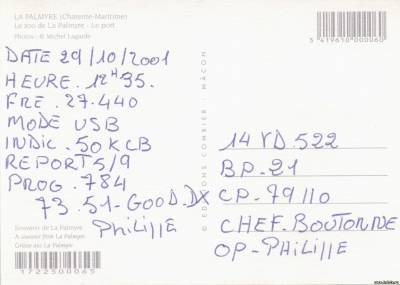 LA PALMYRE (Charente-Maritime)
Le zoo de La Palmyre - Le port
Photos : © Michel Lagarde
3 419610 000060
DATE 29/10/2001
HEURE . 12H35.
FRE . 27.440
MODE USB
INDIC . 50 KCB
REPORT 5/9
PROG . 784
73.51-GOOD.DX
PHILIPPE
© EDITIONS COMBIER - MÂCON
14 VD.522
BP.21
CP.79110
CHEF.BOUTONNE
OP-PHILIPPE
Souvenir de La Palmyre
A souvenir from La Palmyre
Grüsse aus La Palmyre
1722500065